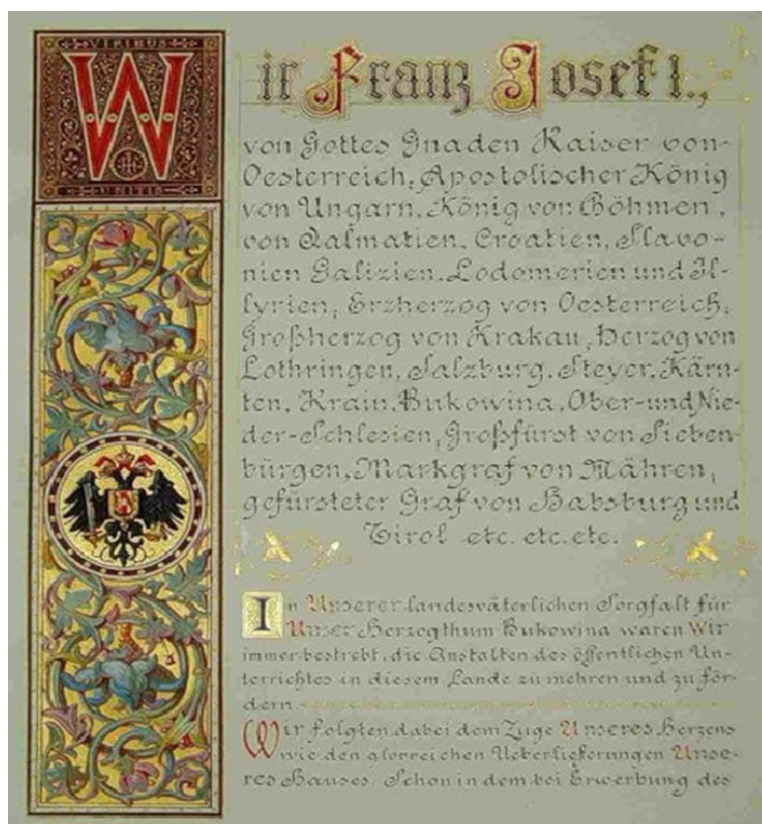 VIRIBUS
UNITIS
Wir Franz Josef I.,
von Gottes Gnaden Kaiser von
Oesterreich, Apostolischer König
von Ungarn, König von Böhmen,
von Dalmatien, Croatien, Slavo-
nien Galizien, Lodomerien und Il-
lyrien, Erzherzog von Oesterreich,
Großherzog von Krakau, Herzog von
Lothringen, Salzburg, Steyer, Kärn-
ten, Krain, Bukowina, Ober- und Nie-
der-Schlesien, Großfürst von Sieben-
bürgen, Markgraf von Mähren,
gefürsteter Graf von Habsburg und
Tirol etc. etc. etc.
In Unserer landesväterlichen Sorgfalt für
Unser Herzogthum Bukowina waren Wir
immer bestrebt, die Anstalten des öffentlichen Un-
terrichtes in diesem Lande zu mehren und zu för-
dern.
Wir folgten dabei dem Zuge Unseres Herzens
wie den glorreichen Ueberlieferungen Unse-
res Hauses. Schon in dem bei Erwerbung des